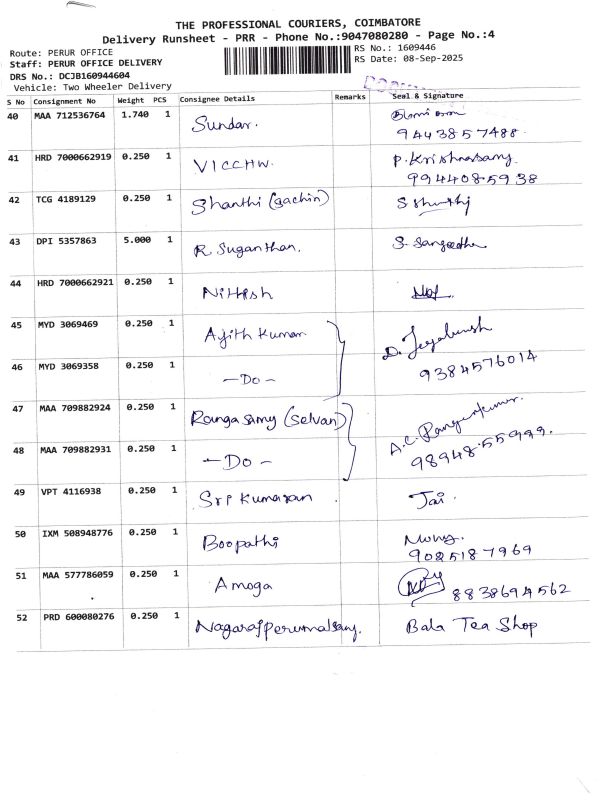 THE PROFESSIONAL COURIERS, COIMBATORE
Delivery Runsheet - PRR - Phone No.:9047080280 - Page No.:4
Route: PERUR OFFICE
RS No.: 1609446
Staff: PERUR OFFICE DELIVERY
RS Date: 08-Sep-2025
DRS No.: DCJB160944604
Vehicle: Two Wheeler Delivery
S No Consignment No Weight PCS Consignee Details Remarks Seal & Signature
40 MAA 712536764 1.740 1 Sundar.
9443857488
41 HRD 7000662919 0.250 1 VICCHW. P. Krishnasamy
9944085938
42 TCG 4189129 0.250 1 Shanthi (gachin)
43 DPI 5357863 5.000 1 R. Suganthan. S. Sangeetha
44 HRD 7000662921 0.250 1 Nithish
45 MYD 3069469 0.250 1 Ajith Kumar D.
9384576014
46 MYD 3069358 0.250 1 — Do —
47 MAA 709882924 0.250 1 Ranga samy (Selvan) A.C.
98948 55999.
48 MAA 709882931 0.250 1 — Do —
49 VPT 4116938 0.250 1 Sri Kumaran Jai.
50 IXM 508948776 0.250 1 Boopathi
9025187969
51 MAA 577786059 0.250 1 Amoga 8838694562
52 PRD 600080276 0.250 1 Nagarajperumalsamy. Bala Tea Shop